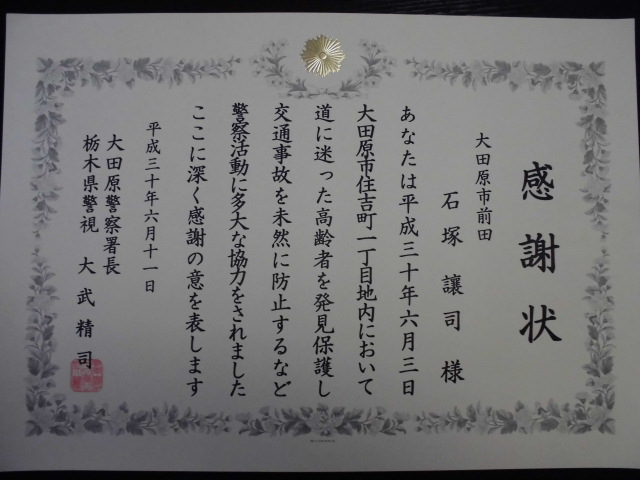 感謝状
大田原市前田
石塚讓司様
あなたは平成三十年六月三日
大田原市住吉町一丁目地内において
道に迷った高齢者を発見保護し
交通事故を未然に防止するなど
警察活動に多大な協力をされました
ここに深く感謝の意を表します
平成三十年六月十一日
大田原警察署長
栃木県警視 大武精司